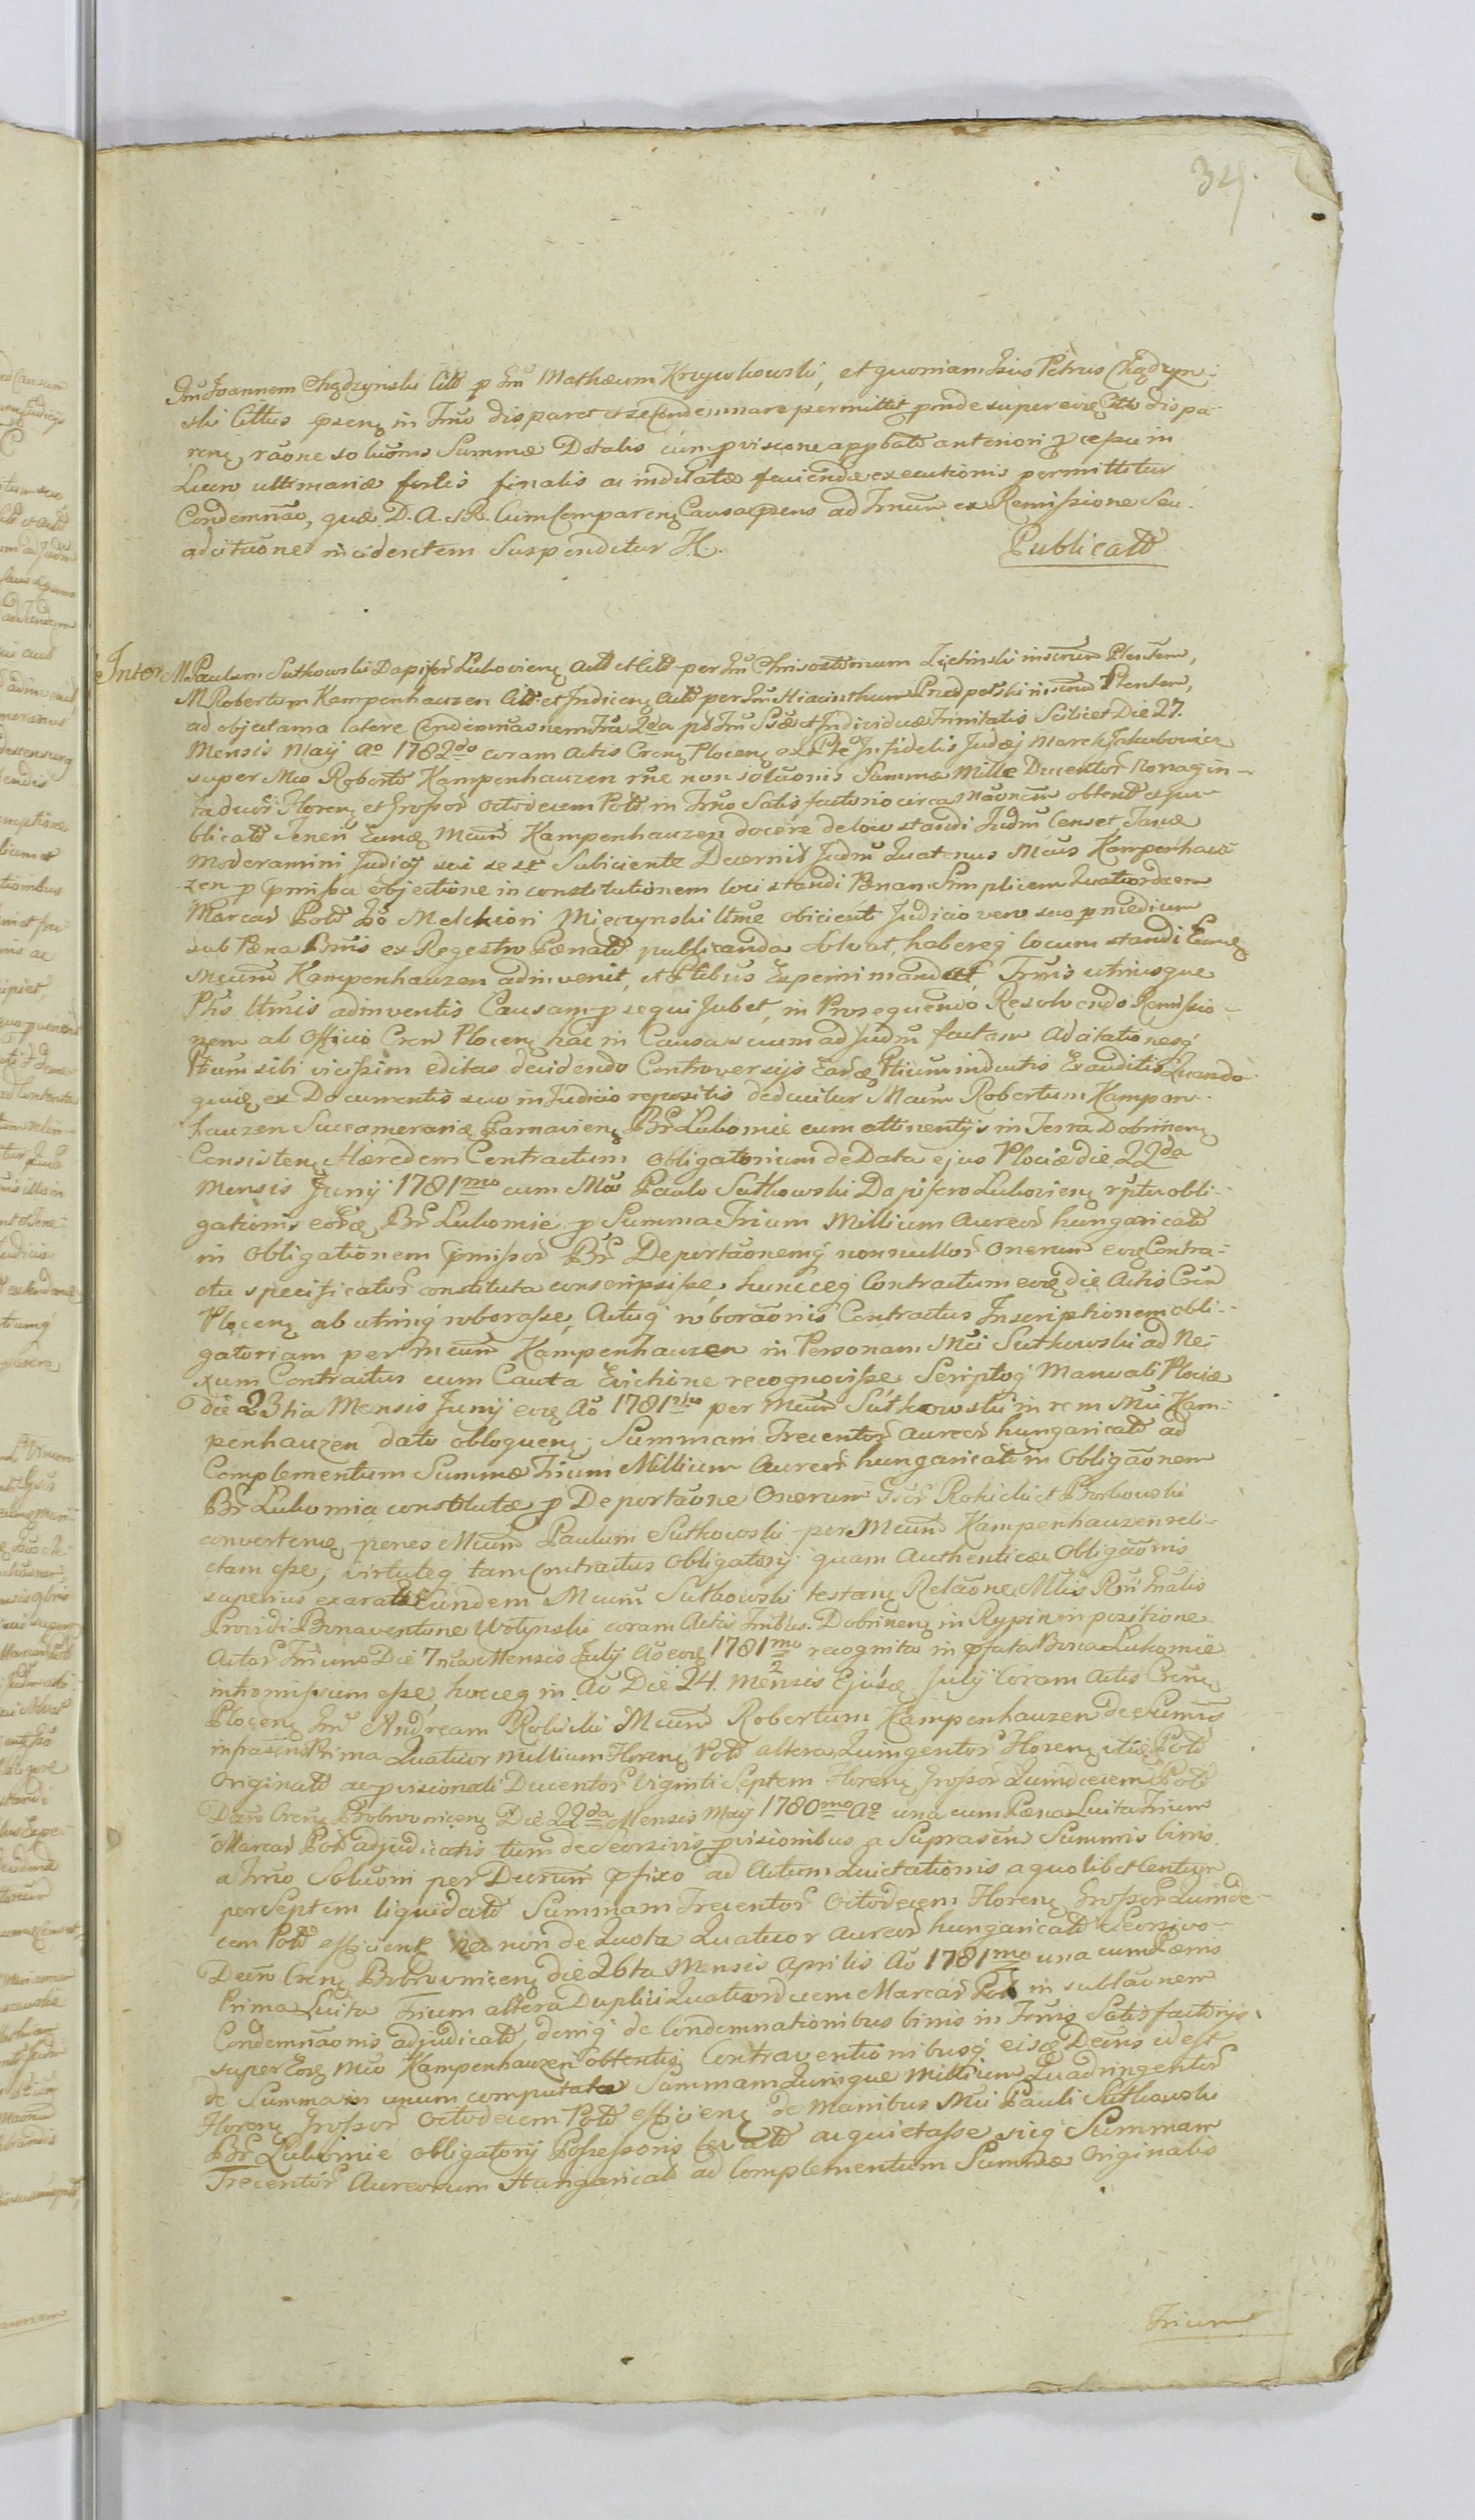 34
Gm Joannem Chądzynski Citt p Gm Mathæum Krzywkowski, et quoniam Gsus Petrus Chądzyn-
ski Cittus psens in Trno disparet et se Condemnare permittit, proinde super eiusq Citto dispa-
rens, raone soluonis Summæ Dotalis cum pvisione appbato anteriori pcessu in
Lucro ultimariæ fortis finalis ac indilatæ faciendæ executionis permittitur
Condemnao, quæ D. A. et R. Cum Comparens Causa psens ad Trnum ex Remissione Seu
adcitaone incidentem Suspenditur H. Publicatt
Inter M. Paulum Sutkowski Dapifer Lukoviens Actt et Citt per Gm Chrisostomum Zieliński Ptentem,
M Robertum Kampenhauzen Citt et Indicens Actt per Gm Hiacinthum Ptentem,
ad objectam a latere Condemnaonem Fra 2da pt Fm Ssæ et Individuæ Trinitatis Scilicet Die 27.
Mensis Maij Ao 1782do coram Actis Crens Plocens ex Pte Infidelis Judæj Marek Jakubowicz
super Mco Roberto Kampenhauzen rne non soluonis Summæ Mille Ducentor Nonagin-
ta duor Florens et Grossor octodecem Polt in Trno Satisfactorio circa obtent et pu-
blicatt Teneri Eunq Mcum Kampenhauzen docere de loco standi Judm Censet
Moderamini Judicij sui se se Subiciente Decernit Judm Quatenus Mcus Kampenhau-
zen p pmissa objectione in constitutionem loci standi Pænam Simplicem Quatuordecem
Marcas Polt Gso Melchiori Mieczynski Ltme obicienti Judicio vero suo p medium
sub Pæna Bnnis ex Regestro Pænatt publicanda solvat, habereq locum standi Eunq
Mcum Kampenhauzen adinvenit, et Ptibus Experiri mandat, Trnis utriusque
Ptis Ltmis adinventis Causam psequi Jubet, in Prosequendo Resolvendo Remissio-
nem ab Officio Cren Plocens hac in Causa suum ad Judm factam Adcitationesq
Ptium sibi vicissim editas decidendo Controversijs Earq Ptium inductis Exauditis Quando-
quidq ex Documentis suo in Judicio repositis deducitur Mcum Robertum Kampen-
hauzen Succamerariæ Parnaviens Br Lubomie cum attinentijs in Terra Dobrinens
Consistens Hæredem Contractum obligatorium de Data ejus Plociæ die 22da
Mensis Junij 1781mo cum Mco Paulo Sutkowski Dapifero Lukoviens rptu obli-
gationis eorq Br Lubomie p Summa Trium Millium Aureor hungaricatt
in obligationem pmissor Br Deportaonemq nonnullor Onerum eoq Contra-
ctu specificator constituta conscripsisse, huncceq Contractum eoq die Actis Cren
Plocens ab utrinq roborasse, Actuq roboraonis Contractus Inscriptionem obli-
gatoriam per Mcum Kampenhauzen in Personam Mci Sutkowski ad Ne-
xum Contractus cum Cauta Evictione recognovisse Scriptoq Manuali Plociæ
die 23tia Mensis Junij eoq Ao 1781mo per Mcum Sutkowski in rem Mci Kam-
penhauzen dato obloquens, Summam Trecentor Aureor hungaricatt ad
Complementum Summæ Trium Millium Aureor hungaricatt in Obligaonem
Br Lubomia constitutæ p Deportaone Onerum Gsor Rokicki et Borkowski
convertens penes Mcum Paulum Sutkowski per Mcum Kampenhauzen reli-
ctam esse, virtuteq tam Contractus Obligatorij quam Authenticæ Obligaonis
superius exaratæ Eundem Mcum Sutkowski testans Relaone Mtlis Rni Gnalis
Providi Bonaventuræ Wołynski coram Actis Tribus. Dobrinens in Rypin in positione
Actor Trium Die 7ma Mensis Julij Ao eoq 1781mo recognita in pfata Bona Lubomie
intromissum esse, hocceq in Ao Die 24. Mensis Ejusq Julij Coram Actis Crens
Plocens Gm Andream Rokicki Mcum Robertum Kampenhauzen de Summis
infrascrit Prima Quatuor Millium Florens Polt altera Quingentor Florens itiq Polt
Originatt ac pvisionali Ducentor Viginti Septem Florens Grossor Quindecem Polt
Decro Crens Bobrovnicens Die 22da Mensis Maij 1780mo Ao una cum Pæna Luita Trium
Marcar Polt adjudicatis tum de Seorsivis pvisionibus a Suprascri Summis binis
a Trno Soluoni per Decrum pfixo ad Actum Quietationis a quolibet Centum
per Septem liquidatt Summam Trecentor Octodecem Florens Grossor Quinde-
cem Polt efficiens nec non de Quota Quatuor Aureor hungaricatt Seorsivo
Decro Crens Bobrovnicens die 26ta Mensis Aprilis Ao 1781mo una cum Pænis
Prima Luita Trium altera Duplici Quatuordecem Marcar Polt in sublaonem
Condemnaonis adjudicatt, deniq de Condemnationibus binis in Trnis Satisfactorijs
super Eoq Mco Kampenhauzen obtentis Contraventionibusq eisq Decris id est
de Summa in unum computata Summam Quinque Millium Quadringentor
Florens Grossor Octodecem Polt efficiens de Manibus Mci Pauli Sutkowski
Br Lubomie obligatorij Possessoris levatt acquietasse sicq Summam
Trecentor Aureorum Hungaricatt ad Complementum Summæ Originalis
Trium